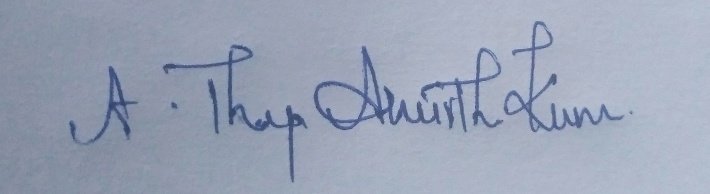 A. Thap Anirth Kum.